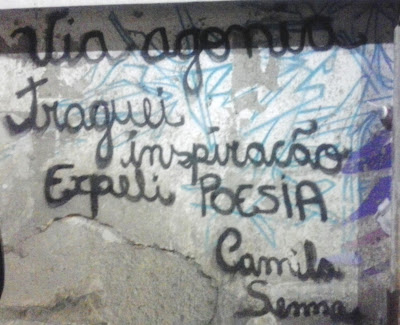 Via agonia
Traguei
inspiração
Expeli POESIA
Camila
Senna